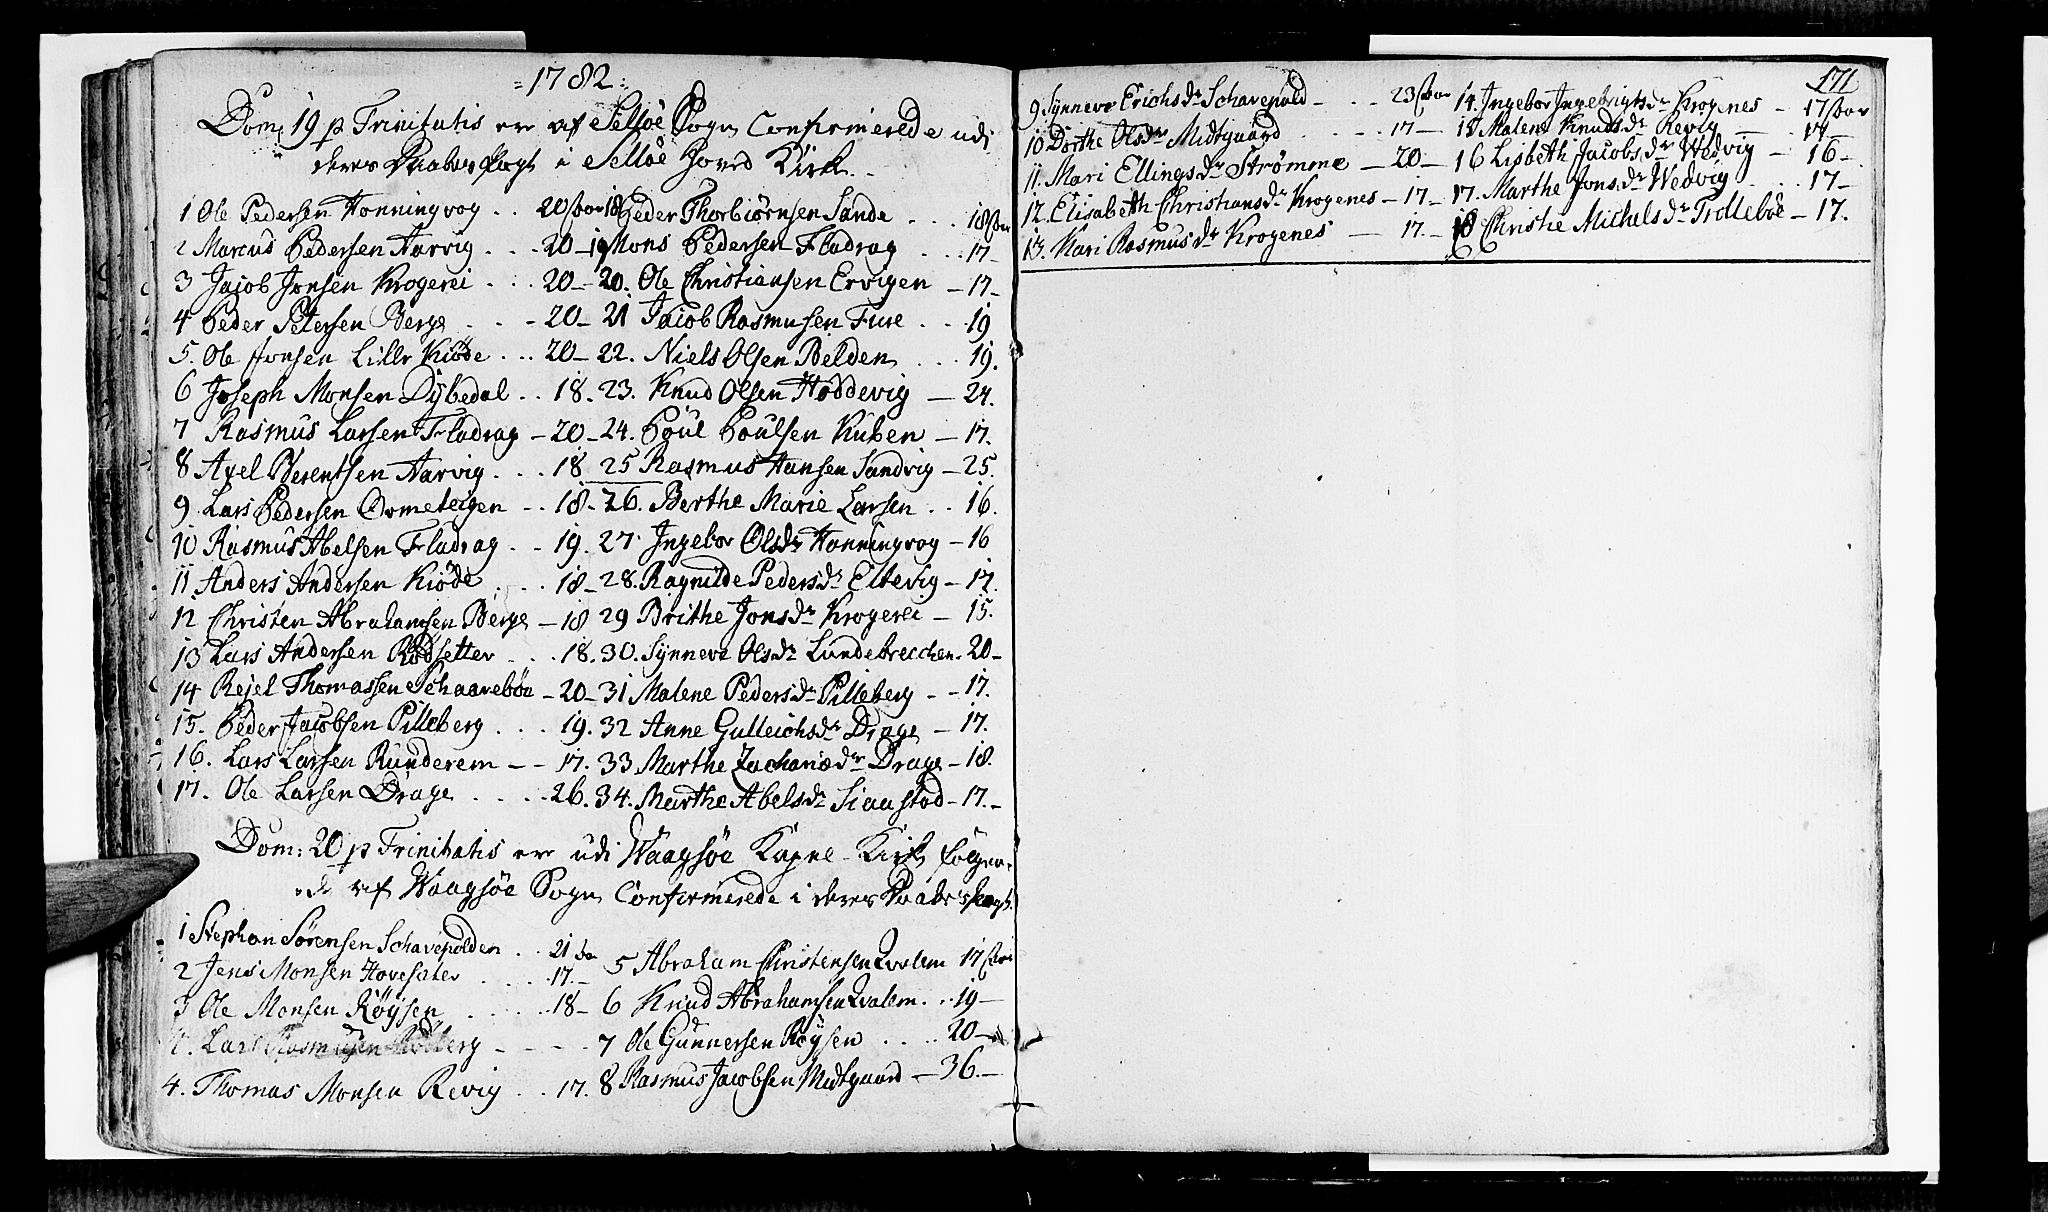 =1782:
Dom: 19 p Trinitatis ere af Selløe Sogn Confirmerede udi
deres Daabes Pagt i Selløe Hoved Kirke.
1 Ole Pedersen Honningvog .. 20 aar
2 Marcus Pedersen Aarvig . . . 20 –
3 Jacob Jonsen Krogerei . . . 20 –
4 Peder Petersen Berge . . - 20 –
5. Ole Jonsen Lille Kiøde . . . 20 –
6 Joseph Monsen Dybedal . . 18.
7 Rasmus Larsen Fladrag – 20 –
8 Axel Berentsen Aarvig . . . 18
9. Lars Pedersen Ormeteigen - - 18 -
10 Rasmus Abelsen Fladrag . . 19.
11 Anders Andersen Kiøde . . . 18 –
12 Christen Abrahamsen Berge – 18
13 Lars Andersen Rødsetter . . . 18.
14 Rejel Thomassen Schaarebøe – 20 –
15. Peder Jacobsen Pilleberg . . . 19.
16. Lars Larsen Runderem – - 17.
17. Ole Larsen Drage . . . . 26.
18 Peder Thorbiørnsen Sande . . . 18 aar
19 Mons Pedersen Fladrag . . . 17 –
20. Ole Christiansen Ervigen – 17 –
21 Jacob Rasmusen Fure . . . 19
22. Niels Olsen Belden . . . 19.
23. Knud Olsen Hoddevig – 24.
24. Poul Poulsen Kuben – 17.
25 Rasmus Hansen Sandvig – 25.
26. Berthe Marie Larsen . . 16.
27. Ingebor Olsdr Honningvog – 16
28. Ragnilde Pedersdr Eltevig – 17.
29 Brithe Jonsdr Krogerei – 15.
30. Synneve Olsdr Lundebrecchen - 20 –
31 Malene Pedersdr Pilleberg - - 17.
32 Anne Gulleichsdr Drage – 17.
33 Marthe Zachariædr Drage – 18.
34. Marthe Abelsdr Siaastad – 17. –
Dom: 20 p Trinitatis ere udi Waagsøe Kirke følgen-
-de af Waagsøe Sogn Confirmerede i deres Daabes pagt.
1 Stephan Sørensen Schavepolden . . 21 aar
2 Jens Monsen Hovesæter . . . 17. –
3 Ole Monsen Røysen . . . . . 18 –
4. Lars Rasmusen - - - -
4. Thomas Monsen Revig . . 17.
5 Abraham Christensen Qvalem 17 aar
6 Knud Abrahamsen Qvalem . . 19 –
7 Ole Gunnersen Røysen . . . . 20 –
8 Rasmus Jacobsen Midtgaard – 36. –
171
9 Synneve Erichsdr Schavepold - . . . 23 aar
10 Dorthe Olsdr Midtgaard . . . . - 17 –
11. Mari Ellingsdr Strømme – 20 –
12. Elisabeth Christiansdr Krogenes – 17 –
13. Kari Rasmusdr Krogenes – 17. –
14. Ingebor Ingebrigtsdr Krogenes – 17 aar
15 Malene Knudsdr Revig – 17 –
16 Lisbeth Jacobsdr Wedvig – . 16 –
17. Marthe Jonsdr Wedvig . . . . 17 –
18 Christie Michelsdr Trolleboe – 17.